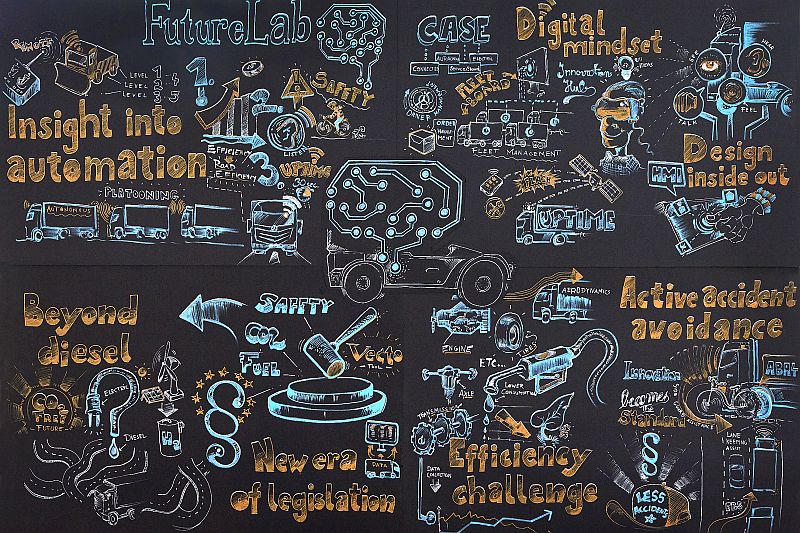 FutureLab
REMOTE
LEVEL 1 & 2
LEVEL 3
LEVEL 5
1.
SAFETY
Insight into
automation
EFFICIENCY
ROAD
EFFICIENCY
3
UPTIME
PLATOONING
AUTONOMOUS
CASE
AUTONOMOUS
ELECTRIC
CONNECTED
FLEET
BOARD
ORDER
MANAGEMENT
FLEET MANAGEMENT
UPTIME
Digital
mindset
Innovation
Hub
IDEAS
HEAR
TALK
FEEL
Design
inside out
HMI
Beyond
diesel
CO2
FREE
FUTURE
ELECTRIC
DIESEL
H2
SAFETY
CO2
FUEL
Vecto
TOOL
DATA
New era
of legislation
§
ENGINE
TIRES
AERODYNAMICS
ETC...
AXLE
LOWER
CONSUMPTION
TRANSMISSION
DATA
COLLECTION
Efficiency
challenge
Active accident
avoidance
Innovation
becomes
the
Standard
ASSISTANCE
ABA4
LANE
KEEPING
ASSIST
§
LESS
ACCIDENTS